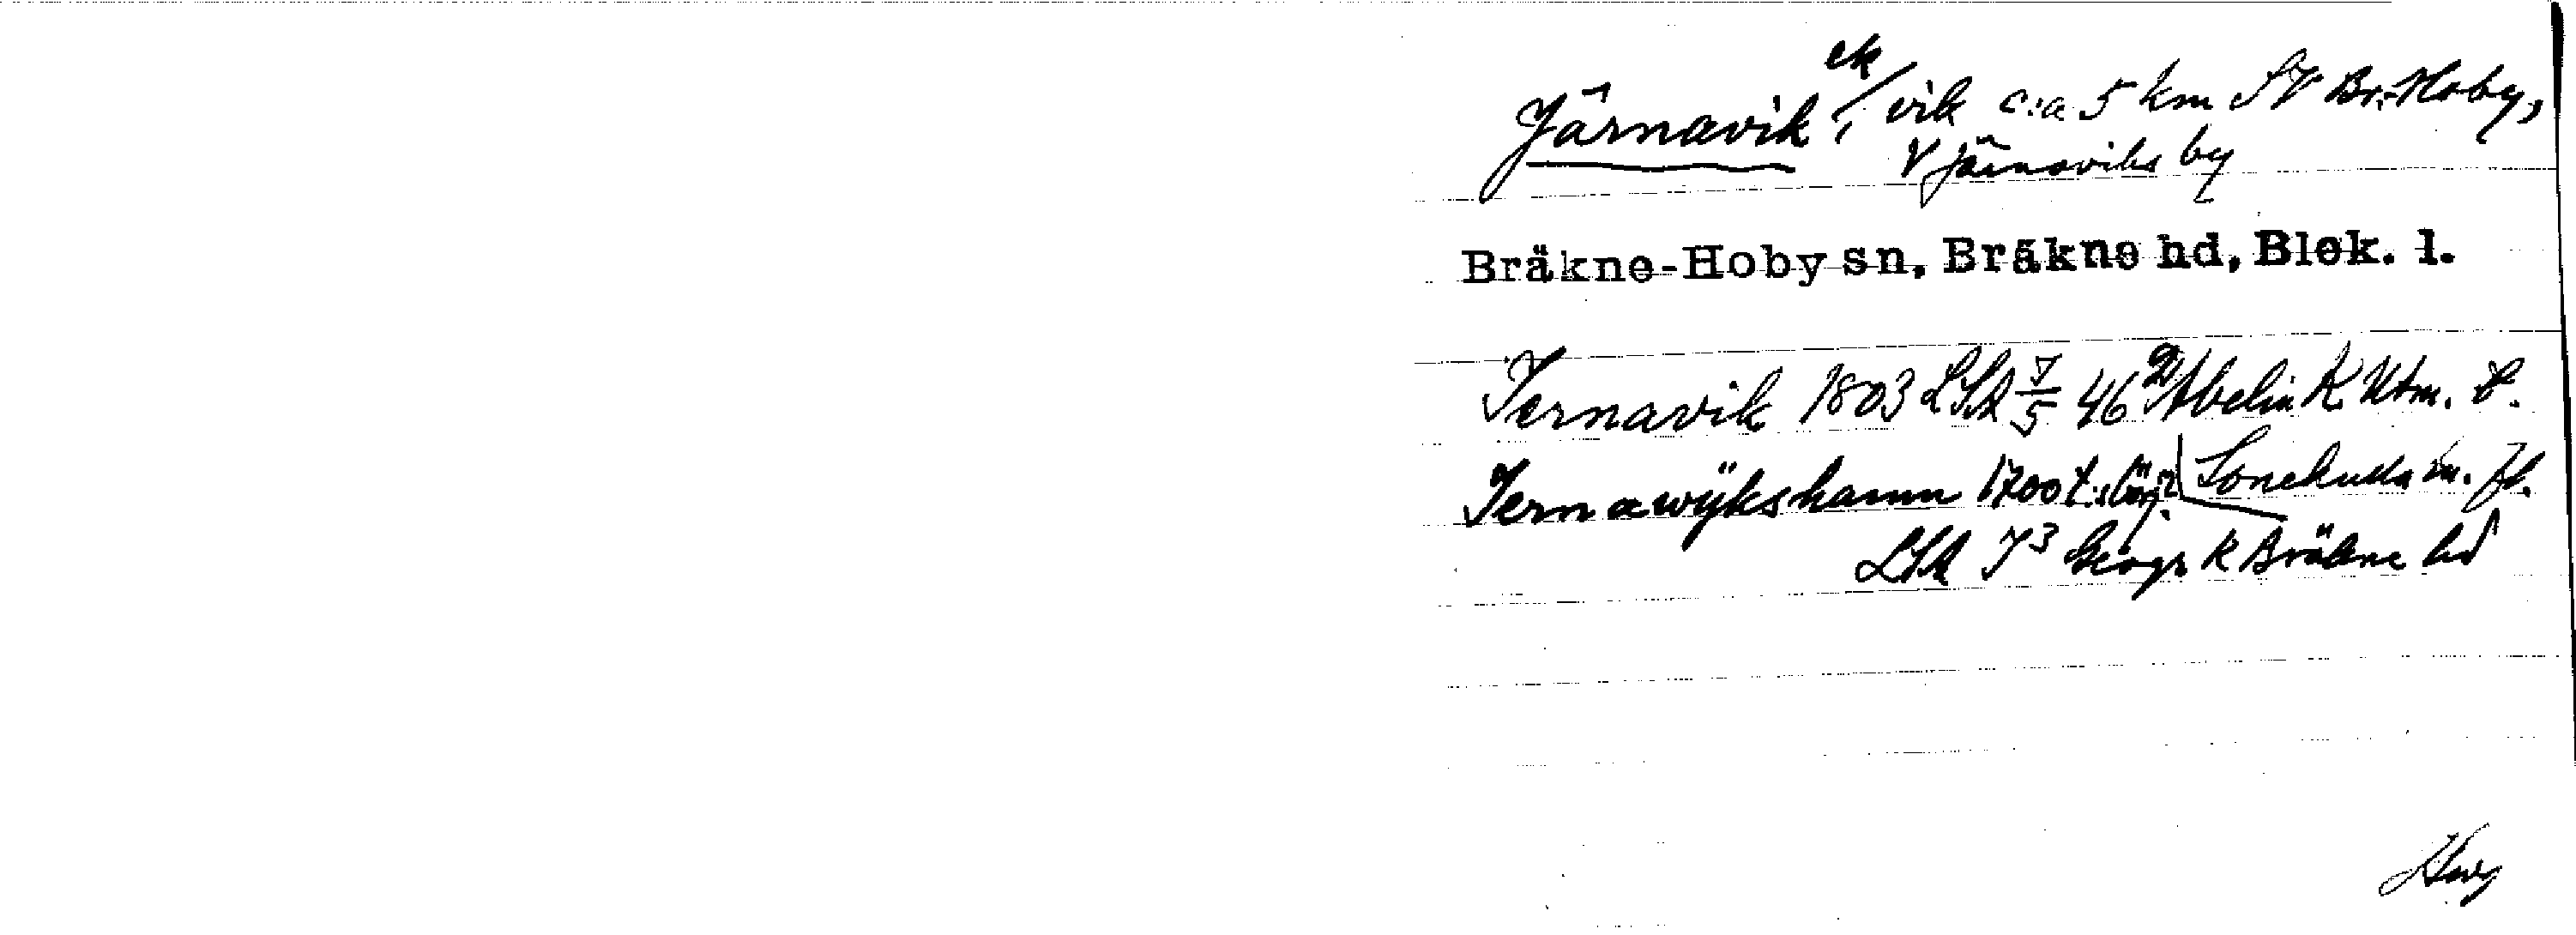 ek
Järnavik, vik c:a 5 km SV Br.-Hoby,
V Järnaviks by
Bräkne-Hoby sn, Bräkne hd, Blek. l.
Jernavik 1803 LSA 7/5 46 Abelin K Utm. t.
Jernawijkshamn 1700 t. m. fl.
LSA 7³ Geogr K Bräkne hd